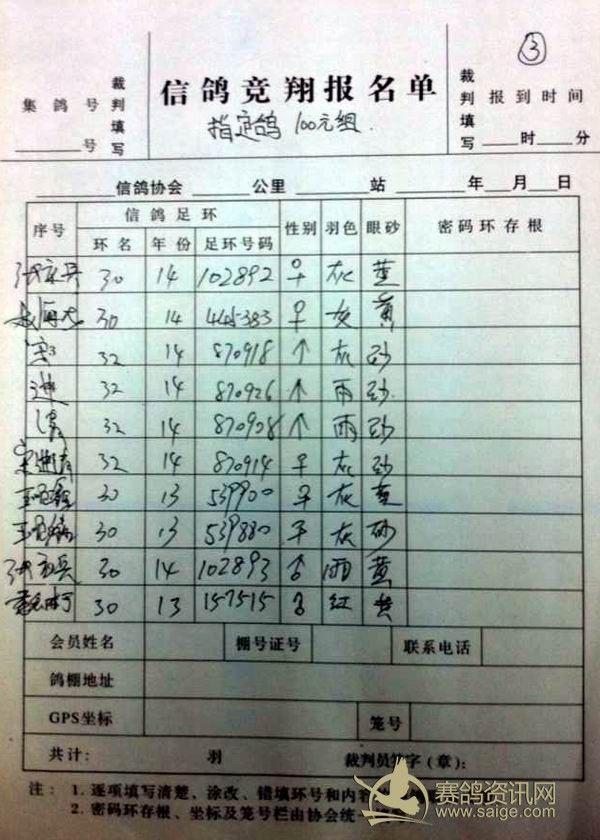 ③
集鸽号
____号
裁判填写
信鸽竞翔报名单
指定鸽 100元组
裁判填写
报到时间
____时____分
____信鸽协会 ____公里 ____站 ____年__月__日
序号 信鸽足环 性别 羽色 眼砂 密码环存根
环名 年份 足环号码
30 14 102892 ♀ 灰 黄
30 14 445383 ♀ 灰 黄
宋 32 14 870918 ↑ 灰 砂
进 32 14 870926 ↑ 雨 砂
清 32 14 870928 ↑ 雨 砂
宋进清 32 14 870914 ♀ 灰 砂
30 13 539900 ♀ 灰 黄
30 13 539880 ♀ 灰 砂
30 14 102893 ♂ 雨 黄
30 13 157515 ♂ 红 黄
会员姓名 棚号证号 联系电话
鸽棚地址
GPS坐标 笼号
共计： 羽 裁判员签字（章）：
注： 1. 逐项填写清楚，涂改、错填环号和内容
2. 密码环存根、坐标及笼号栏由协会统一
赛鸽资讯网
www.saige.com